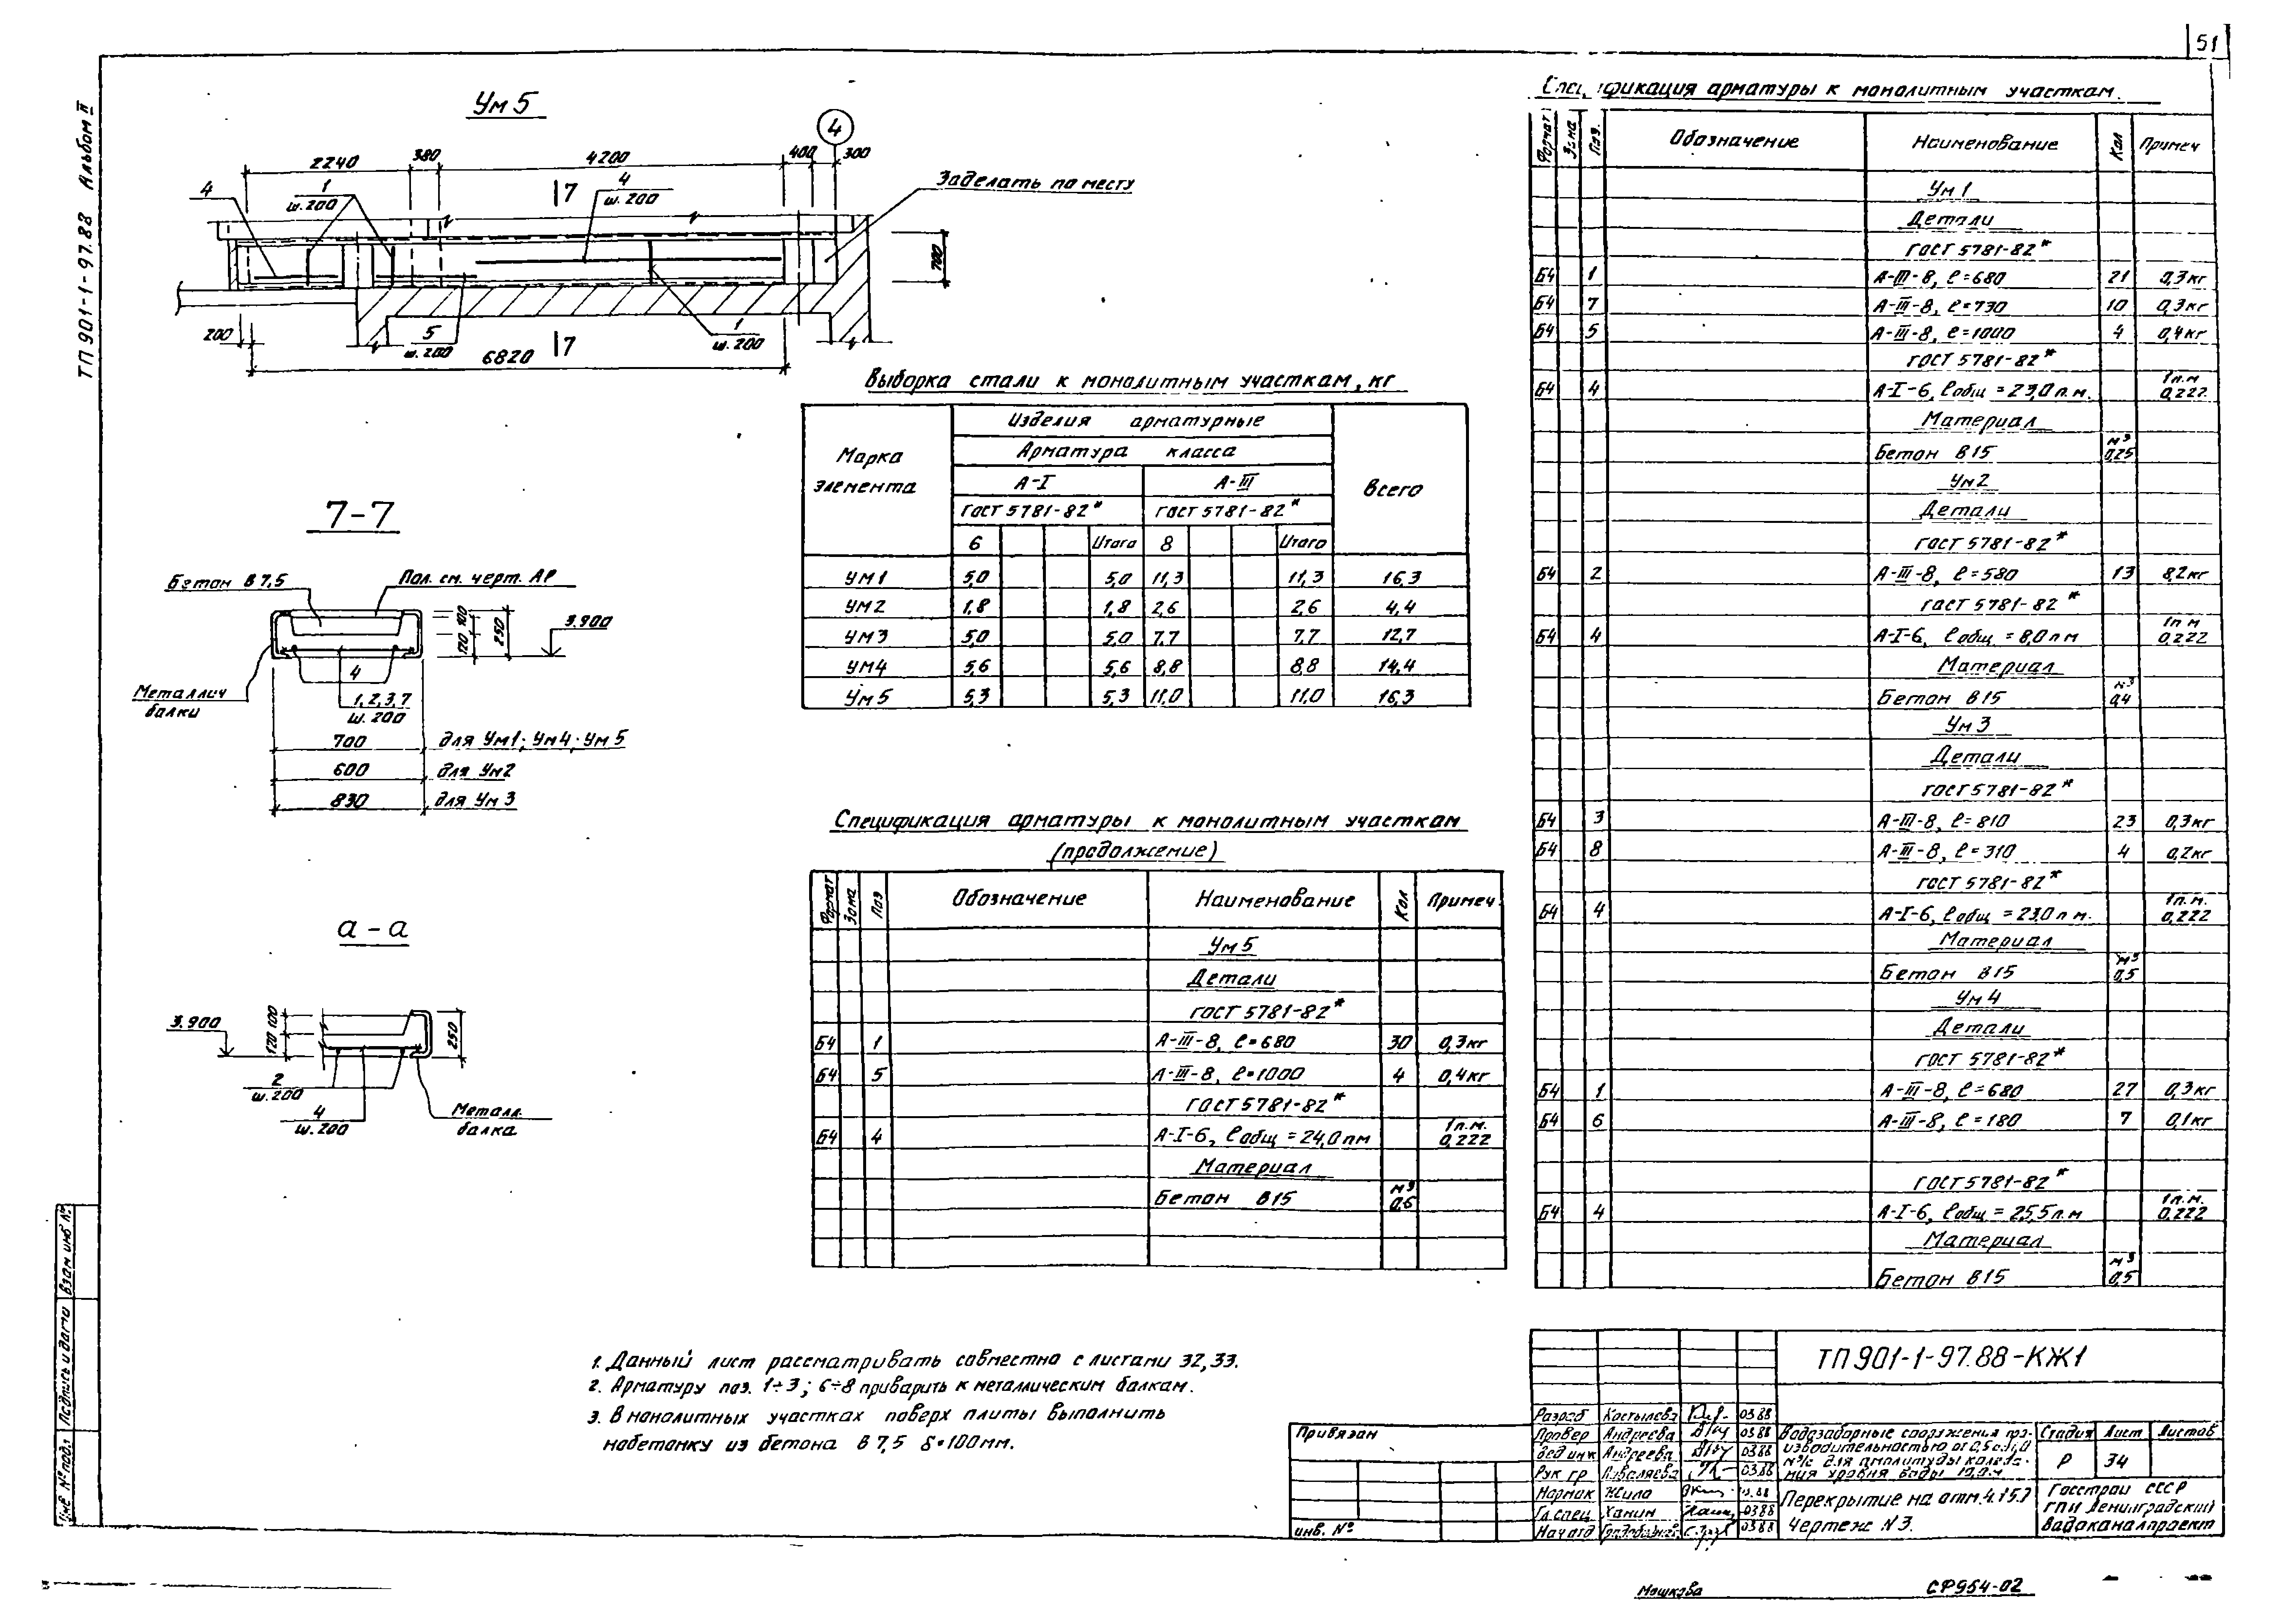 51
ТП 901-1-97.88 Альбом II
Ум 5
4
2240 380 4200 400 300
4 1 ш.200 7 4 ш.200
Заделать по месту
700
200 5 ш.200 6820 7 1 ш.200
7-7
Бетон В 7,5
Пол. см. черт. АР
120 100 250 3.900
4
Металлич
балки
1, 2, 3, 7
ш. 200
700 для Ум1; Ум4; Ум 5
600 для Ум2
830 для Ум 3
а-а
3.900 120 100 250
2
ш.200
4
ш.200
Металл.
балка
Выборка стали к монолитным участкам, кг
Марка элемента Изделия арматурные Всего
Арматура класса
А-I А-III
ГОСТ 5781-82* ГОСТ 5781-82*
6 Итого 8 Итого
УМ1 5,0 5,0 11,3 11,3 16,3
УМ2 1,8 1,8 2,6 2,6 4,4
УМ3 5,0 5,0 7,7 7,7 12,7
УМ4 5,6 5,6 8,8 8,8 14,4
Ум5 5,3 5,3 11,0 11,0 16,3
Спецификация арматуры к монолитным участкам
(продолжение)
Формат Зона Поз Обозначение Наименование Кол Примеч
Ум 5
Детали
ГОСТ 5781-82*
Б4 1 А-III-8, ℓ=680 30 0,3кг
Б4 5 А-III-8, ℓ=1000 4 0,4кг
ГОСТ 5781-82*
Б4 4 А-I-6, ℓобщ = 24,0пм 1п.м. 0,222
Материал
Бетон В15 м³ 0,6
фикация арматуры к монолитным участкам.
Формат Зона Поз. Обозначение Наименование Кол Примеч
Ум 1
Детали
ГОСТ 5781-82*
Б4 1 А-III-8, ℓ=680 21 0,3кг
Б4 7 А-III-8, ℓ=730 10 0,3кг
Б4 5 А-III-8, ℓ=1000 4 0,4кг
ГОСТ 5781-82*
Б4 4 А-I-6, ℓобщ = 23,0п.м. 1п.м 0,222
Материал
Бетон В15 м³ 0,25
Ум2
Детали
ГОСТ 5781-82*
Б4 2 А-III-8, ℓ=580 13 8,2кг
ГОСТ 5781-82*
Б4 4 А-I-6, ℓобщ = 8,0пм 1пм 0,222
Материал
Бетон В15 м³ 0,4
Ум 3
Детали
ГОСТ 5781-82*
Б4 3 А-III-8, ℓ=810 23 0,3кг
Б4 8 А-III-8, ℓ=310 4 0,2кг
ГОСТ 5781-82*
Б4 4 А-I-6, ℓобщ = 23,0п.м. 1п.м. 0,222
Материал
Бетон В15 м³ 0,5
Ум 4
Детали
ГОСТ 5781-82*
Б4 1 А-III-8, ℓ=680 27 0,3кг
Б4 6 А-III-8, ℓ=180 7 0,1кг
ГОСТ 5781-82*
Б4 4 А-I-6, ℓобщ = 25,5п.м 1п.м. 0,222
Материал
Бетон В15 м³ 0,5
1. Данный лист рассматривать совместно с листами 32, 33.
2. Арматуру поз. 1÷3; 6÷8 приварить к металлическим балкам.
3. В монолитных участках поверх плиты выполнить
набетонку из бетона В 7,5 δ=100мм.
Привязан
инв. №
ТП 901-1-97.88-КЖ1
Разраб Костылева 03.88
Провер Андреева 03.88
Вед инж Андреева 03.88
Рук гр 03.88
Нормик Жила
Гл.спец Ханин 03.88
Нач отд 03.88
Водозаборные сооружения про-
изводительностью от 0,5 до 1,0
м³/с для амплитуды колеба-
ния уровня воды 10,0м
Стадия Лист Листов
Р 34
Перекрытие на отм. 4.15.
Чертеж N 3.
Госстрой СССР
ГПИ Ленинградский
Водоканалпроект
Инв № подл Подпись и дата Взам инв №
Мошкова
СФ954-02